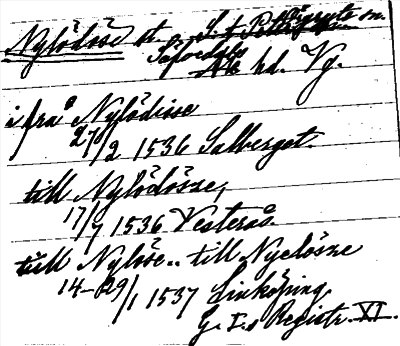 Nylödöse st. o. S:t Peders sn.
Säfvedals
hd. Vg.
i från Nylödisse
27/2 1536 Salberget.
till Nylödösze,
17/7 1536 Vesterås.
till Nylöse.. till Nyelösze
14-29/1 1537 Linköping.
G. I:s Registr. XI.